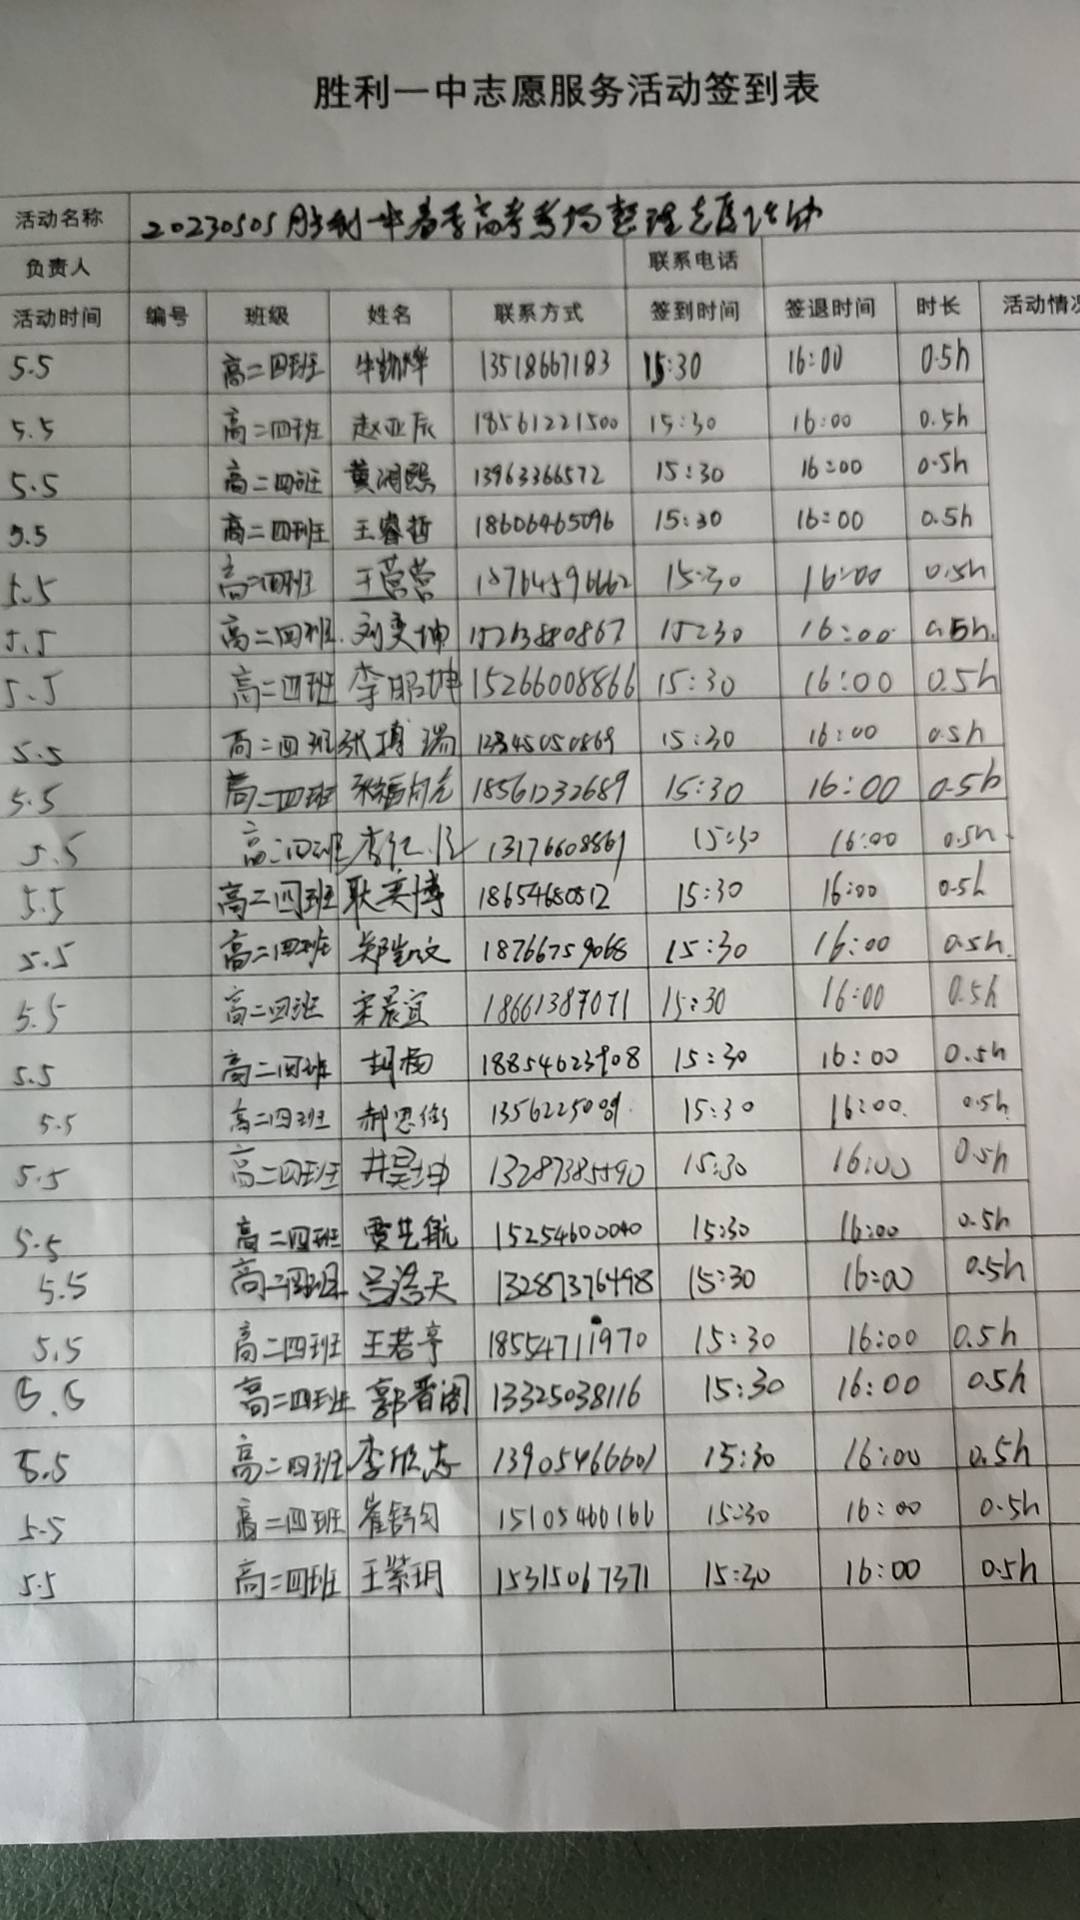 胜利一中志愿服务活动签到表
活动名称 20230505胜利一中春季高考考场整理志愿活动
负责人 联系电话
活动时间 编号 班级 姓名 联系方式 签到时间 签退时间 时长 活动情况
5.5 高二四班 13518667183 15:30 16:00 0.5h
5.5 高二四班 赵亚辰 18561221500 15:30 16:00 0.5h
5.5 高二四班 黄湘熙 13963366572 15:30 16:00 0.5h
5.5 高二四班 王睿哲 18606465096 15:30 16:00 0.5h
5.5 高二四班 王营营 18764596662 15:30 16:00 0.5h
5.5 高二四班 刘奕坤 15263880867 15:30 16:00 0.5h
5.5 高二四班 李昭坤 15266008866 15:30 16:00 0.5h
5.5 高二四班 张博瑞 13345050869 15:30 16:00 0.5h
5.5 高二四班 18561232689 15:30 16:00 0.5h
5.5 高二四班 13176608869 15:30 16:00 0.5h
5.5 高二四班 耿奕博 18654680812 15:30 16:00 0.5h
5.5 高二四班 郑凯文 18766759068 15:30 16:00 0.5h
5.5 高二四班 宋晨宜 18661387071 15:30 16:00 0.5h
5.5 高二四班 胡杨 18854623908 15:30 16:00 0.5h
5.5 高二四班 郝思街 15:30 16:00 0.5h
5.5 高二四班 井昊坤 13287385590 15:30 16:00 0.5h
5.5 高二四班 贾先航 15254600040 15:30 16:00 0.5h
5.5 高二四班 吕浩天 13287376498 15:30 16:00 0.5h
5.5 高二四班 王若亭 18554711970 15:30 16:00 0.5h
5.5 高二四班 郭晋阁 13325038116 15:30 16:00 0.5h
5.5 高二四班 李欣志 13905466601 15:30 16:00 0.5h
5.5 高二四班 崔舒匀 15105466166 15:30 16:00 0.5h
5.5 高二四班 王紫玥 15315067371 15:30 16:00 0.5h